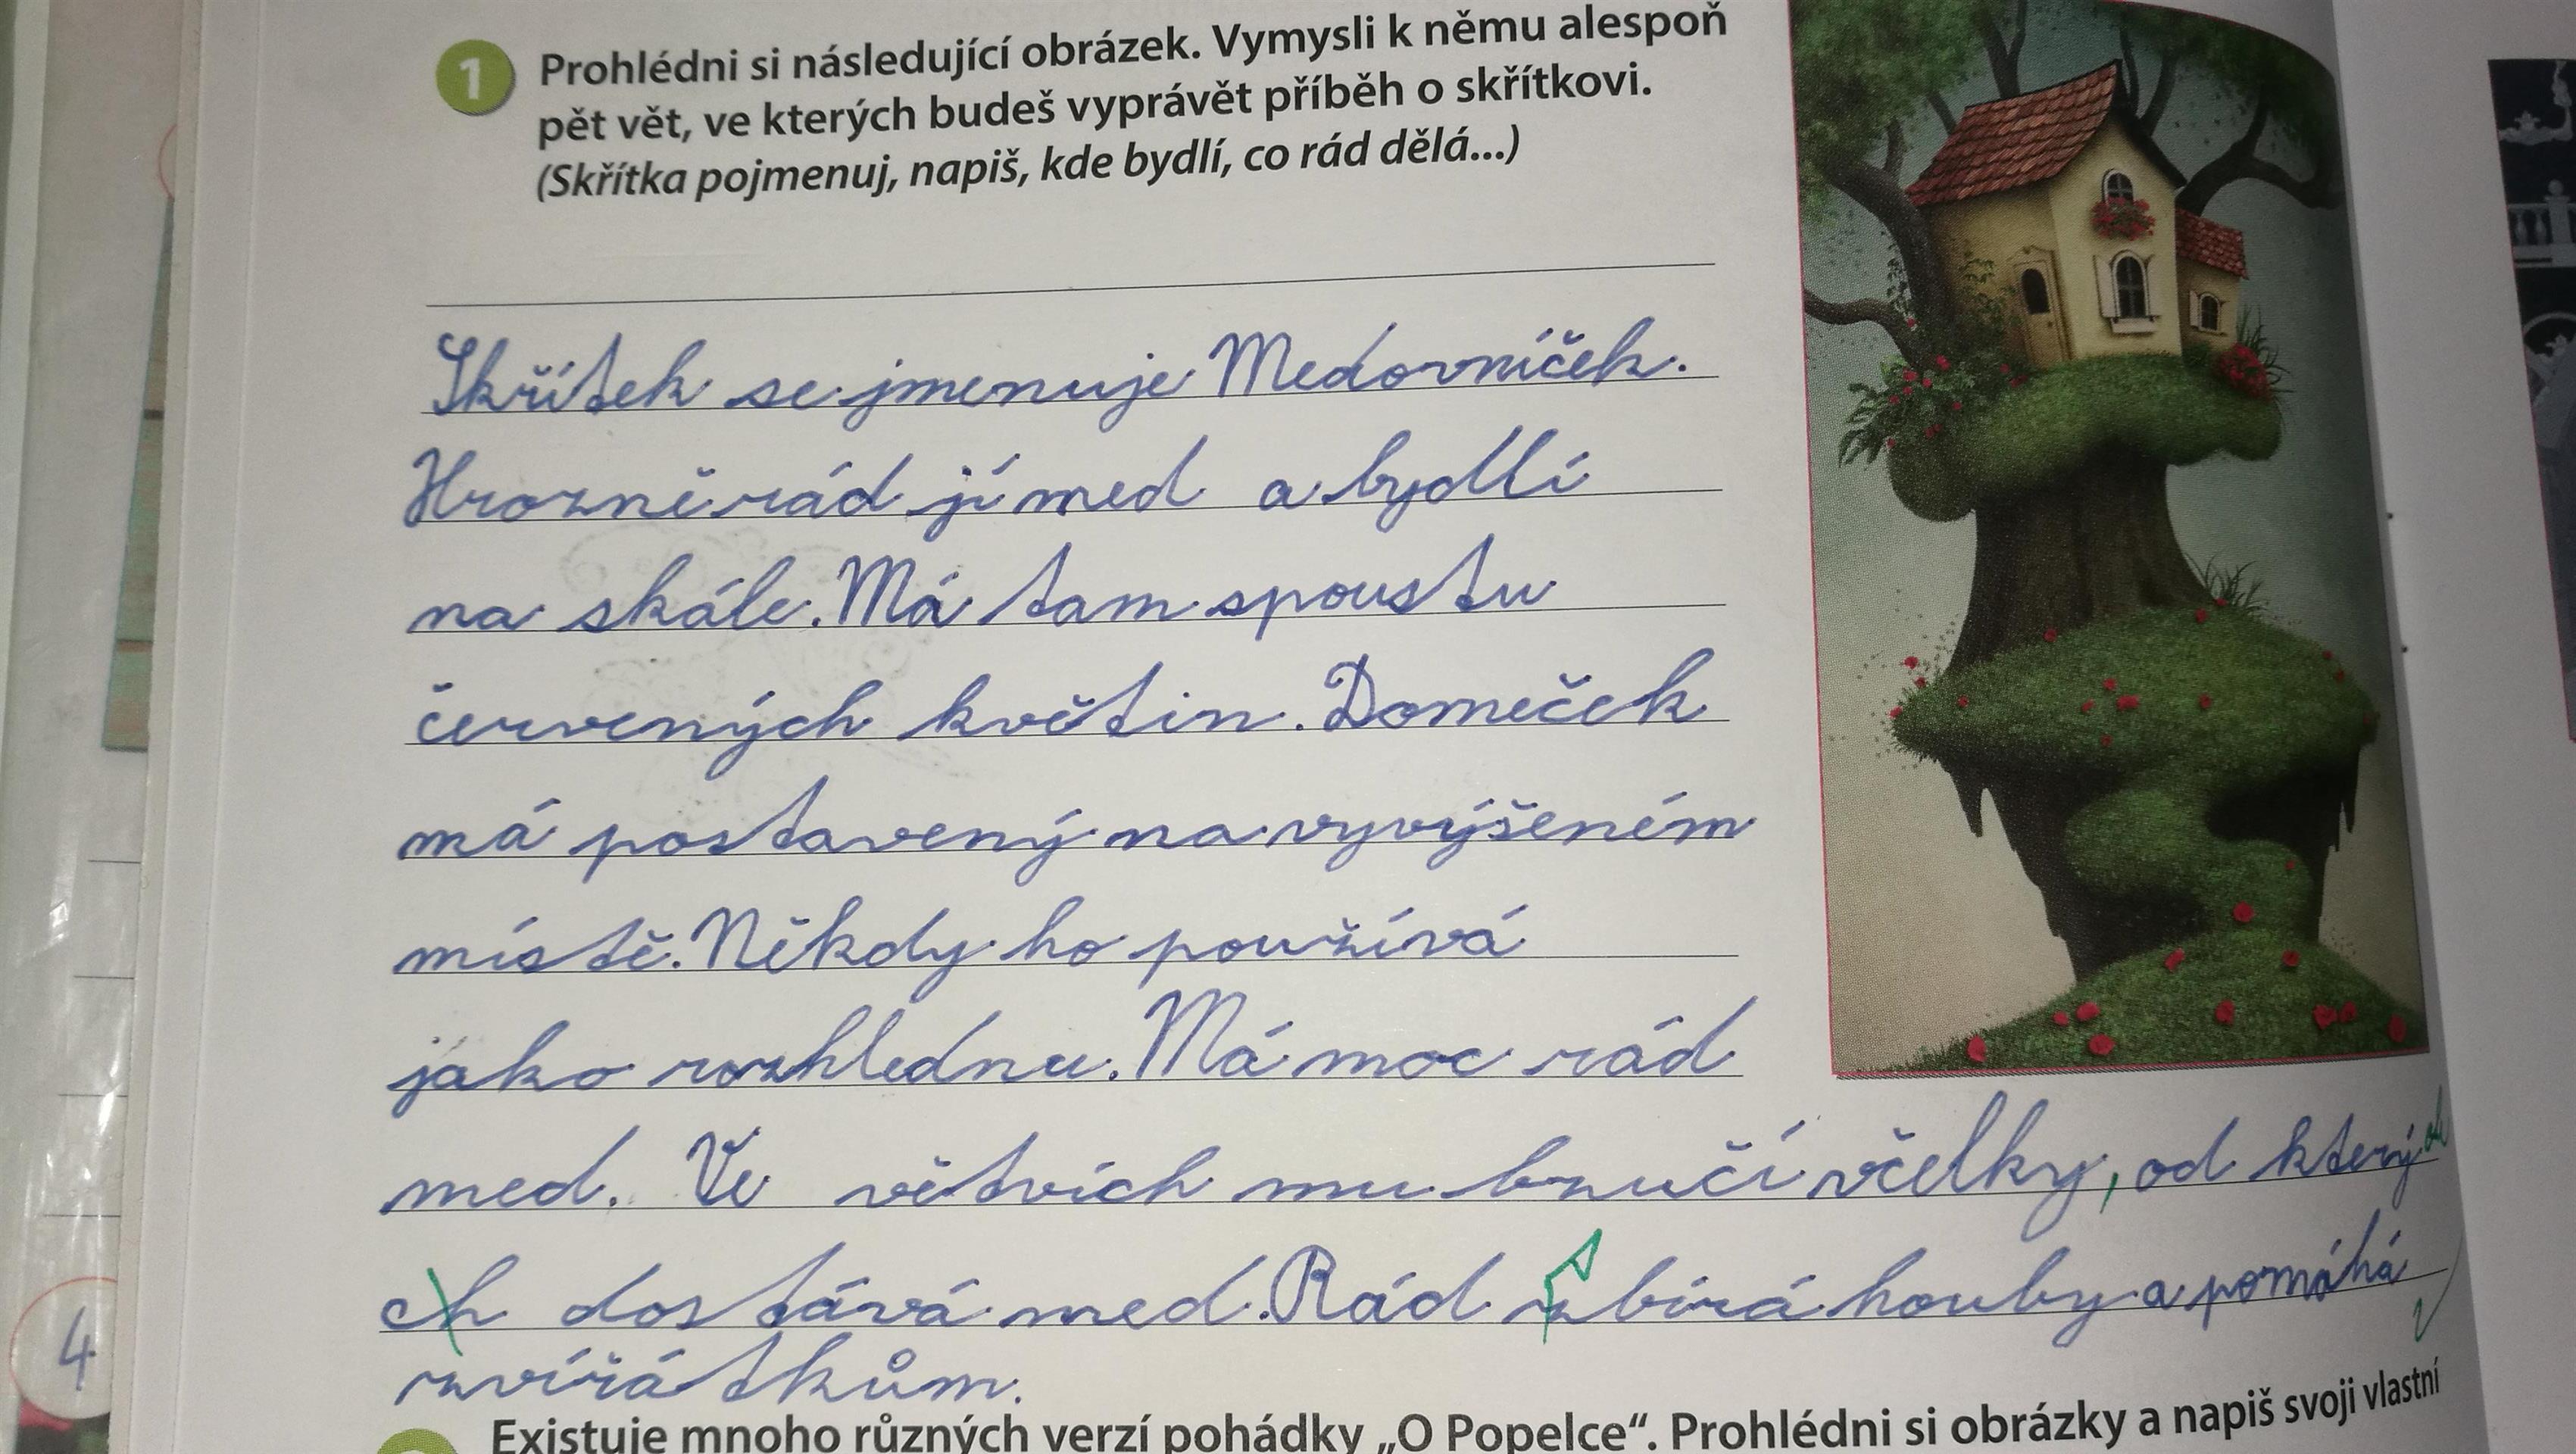 1 Prohlédni si následující obrázek. Vymysli k němu alespoň
pět vět, ve kterých budeš vyprávět příběh o skřítkovi.
(Skřítka pojmenuj, napiš, kde bydlí, co rád dělá...)
Skřítek se jmenuje Medovníček.
Hrozně rád jí med a bydlí
na skále. Má tam spoustu
červených květin. Domeček
má postavený na vyvýšeném
místě. Někdy ho používá
jako rozhlednu. Má moc rád
med. Ve větvích mu bzučí včelky, od kterých
ch dostává med. Rád sbírá houby a pomáhá
zvířátkům.
4
Existuje mnoho různých verzí pohádky „O Popelce“. Prohlédni si obrázky a napiš svoji vlastní